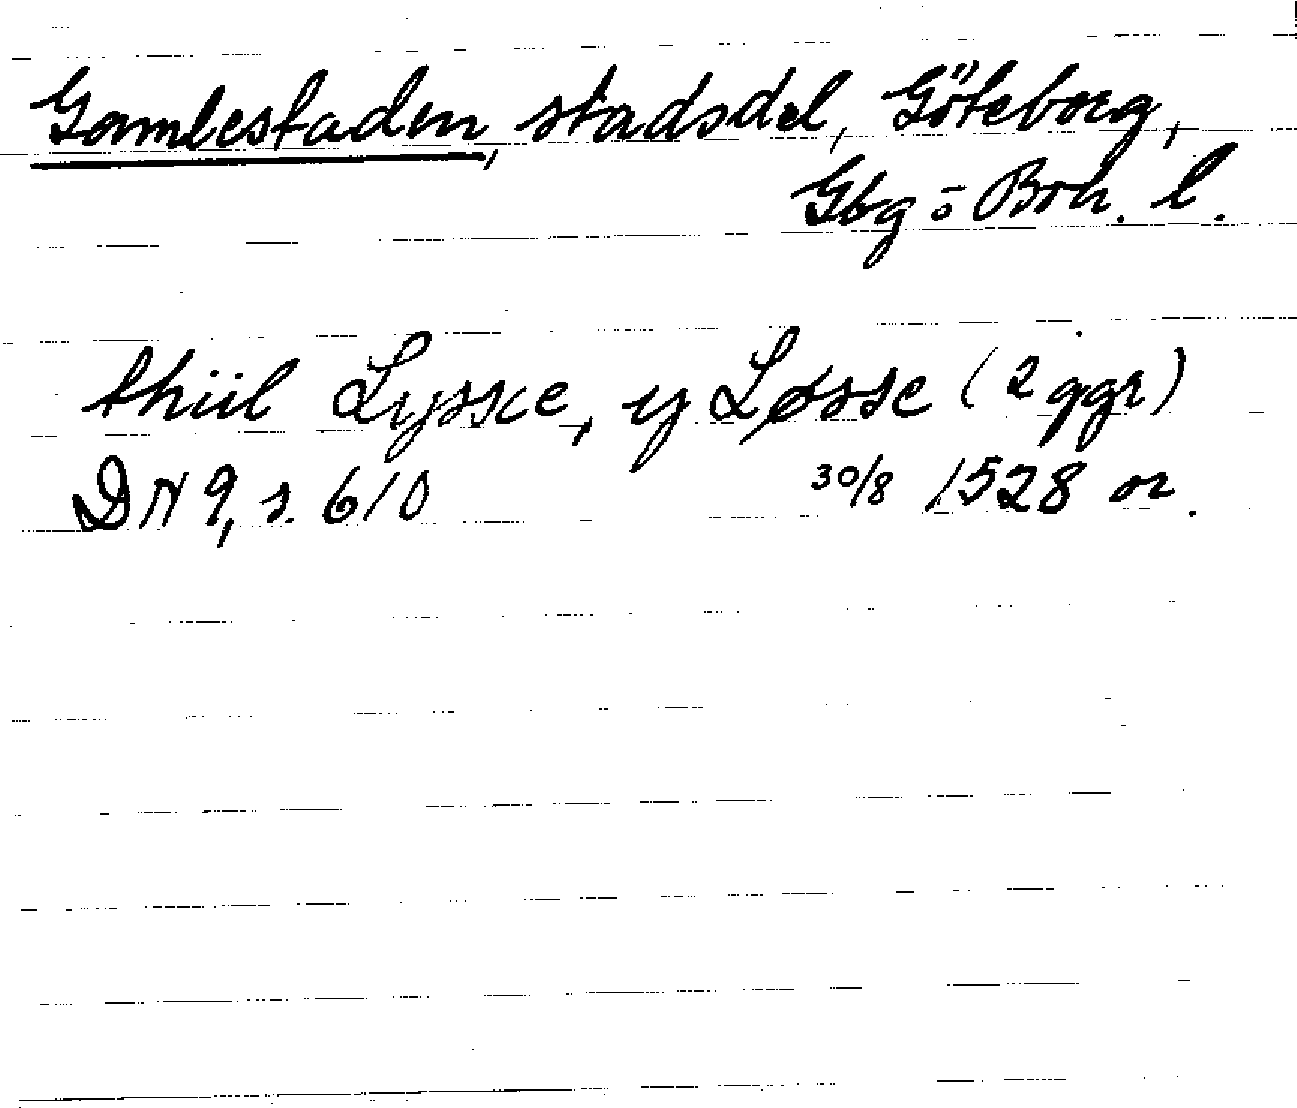 Gamlestaden, stadsdel, Göteborg,
Gbg o Boh. l.
thiil Lysse, y Løsse (2 ggr)
DN 9, s. 610 30/8 1528 or.